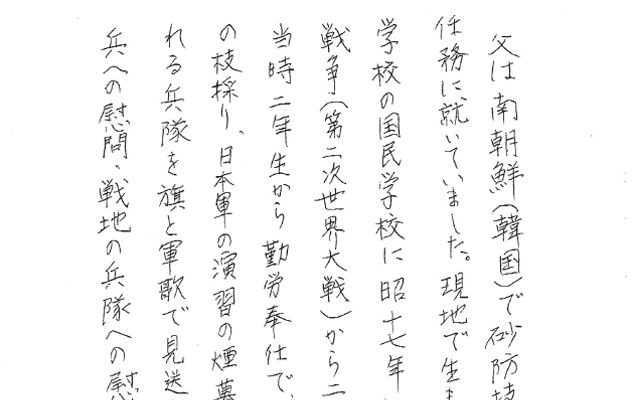 父は南朝鮮(韓国)で砂防技
任務に就いていました。現地で生ま
学校の国民学校に昭十七年
戦争(第二次世界大戦)から二
当時二年生から勤労奉仕で、
の枝採り、日本軍の演習の煙幕
れる兵隊を旗と軍歌で見送
兵への慰問、戦地の兵隊への慰